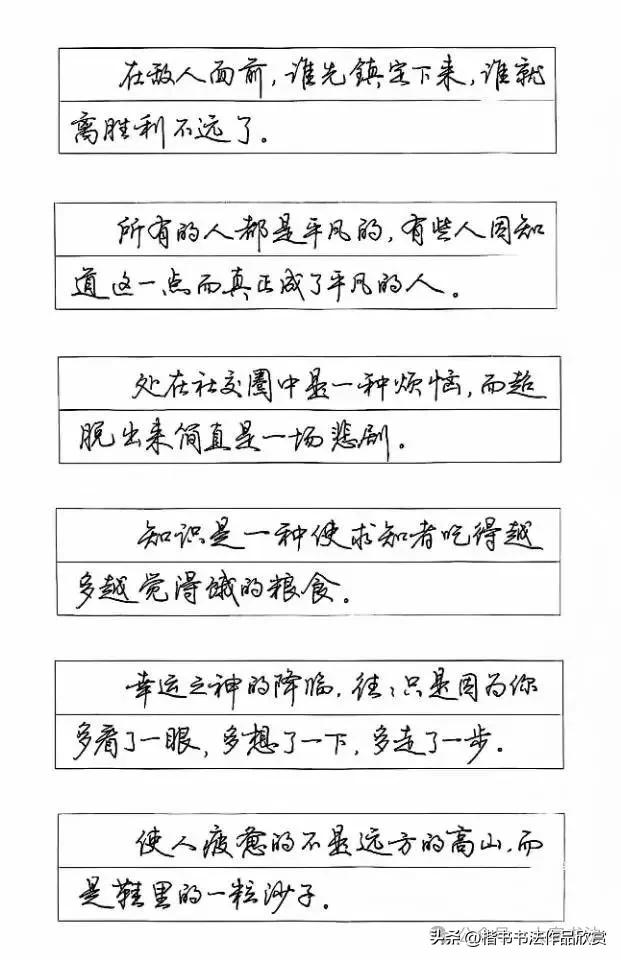 在敌人面前，谁先鎮定下来，谁就
离胜利不远了。
所有的人都是平凡的，有些人因知
道这一点而真正成了平凡的人。
处在社交圈中是一种烦恼，而超
脱出来简直是一场悲剧。
知识是一种使求知者吃得越
多越觉得饿的粮食。
幸运之神的降临，往〻只是因为你
多看了一眼，多想了一下，多走了一步。
使人疲惫的不是远方的高山，而
是鞋里的一粒沙子。
头条@楷书书法作品欣赏